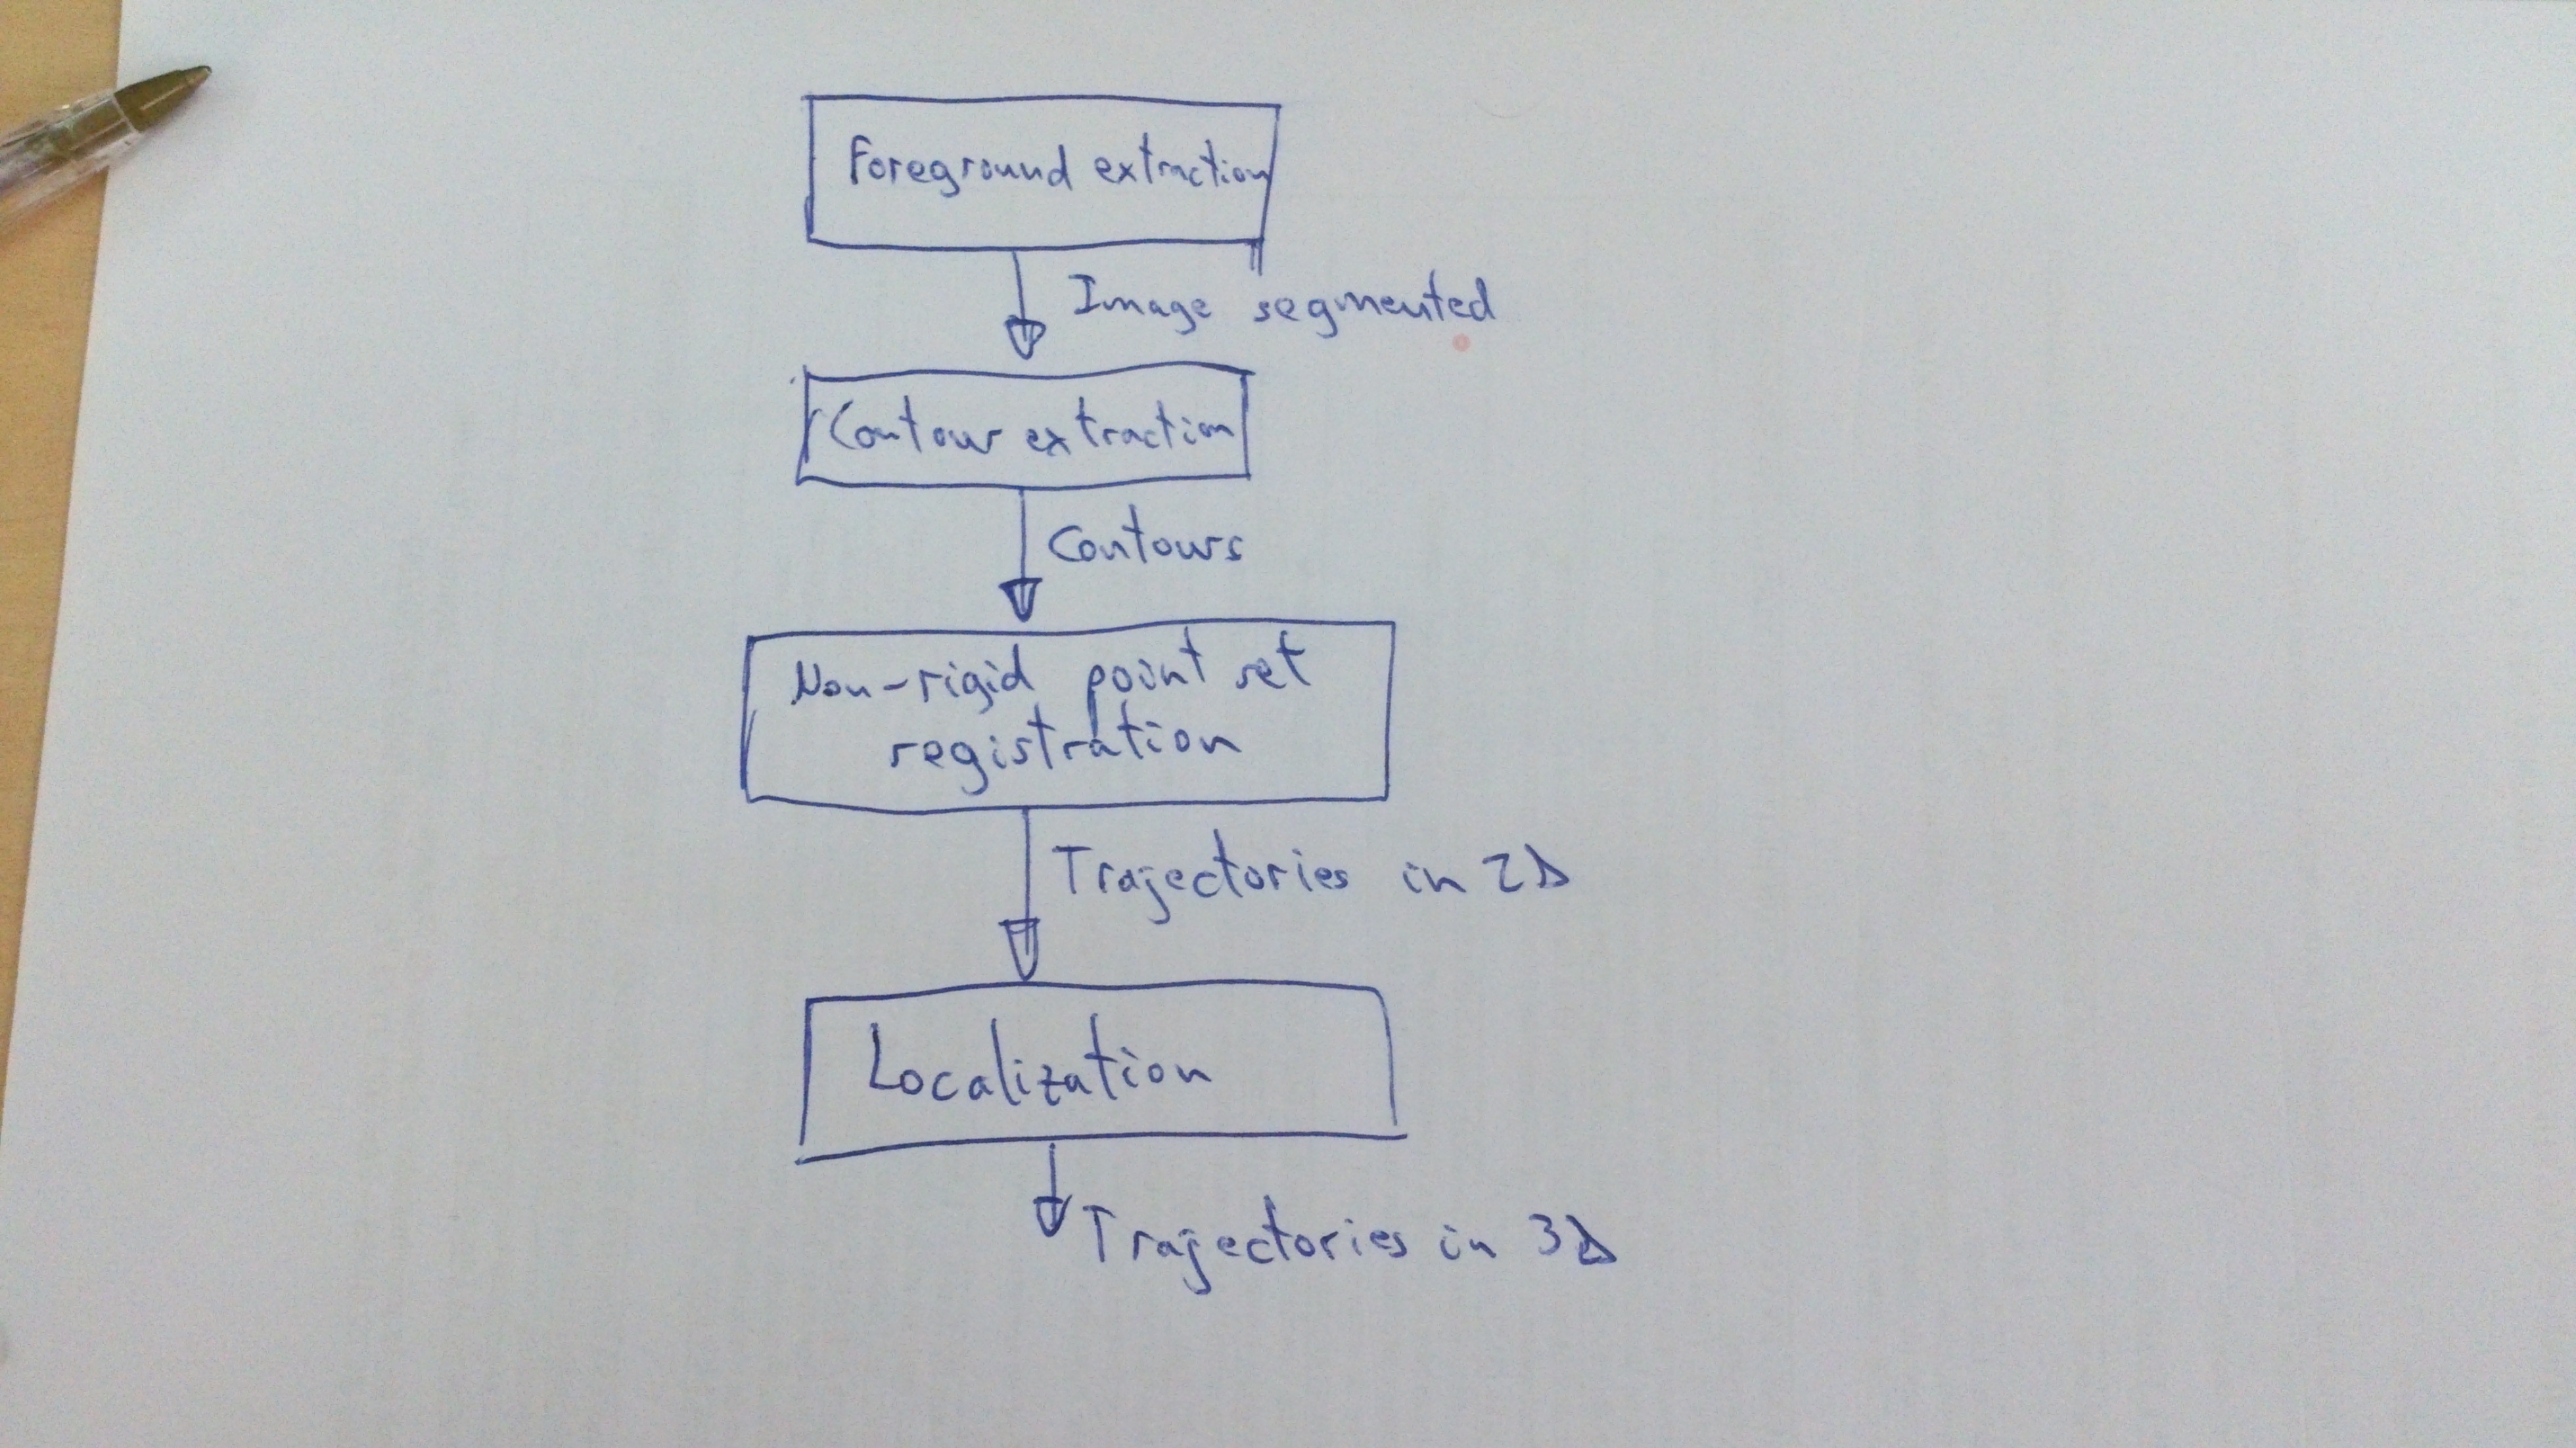 Foreground extraction
Image segmented
Contour extraction
Contours
Non-rigid point set
registration
Trajectories in 2D
Localization
Trajectories in 3D